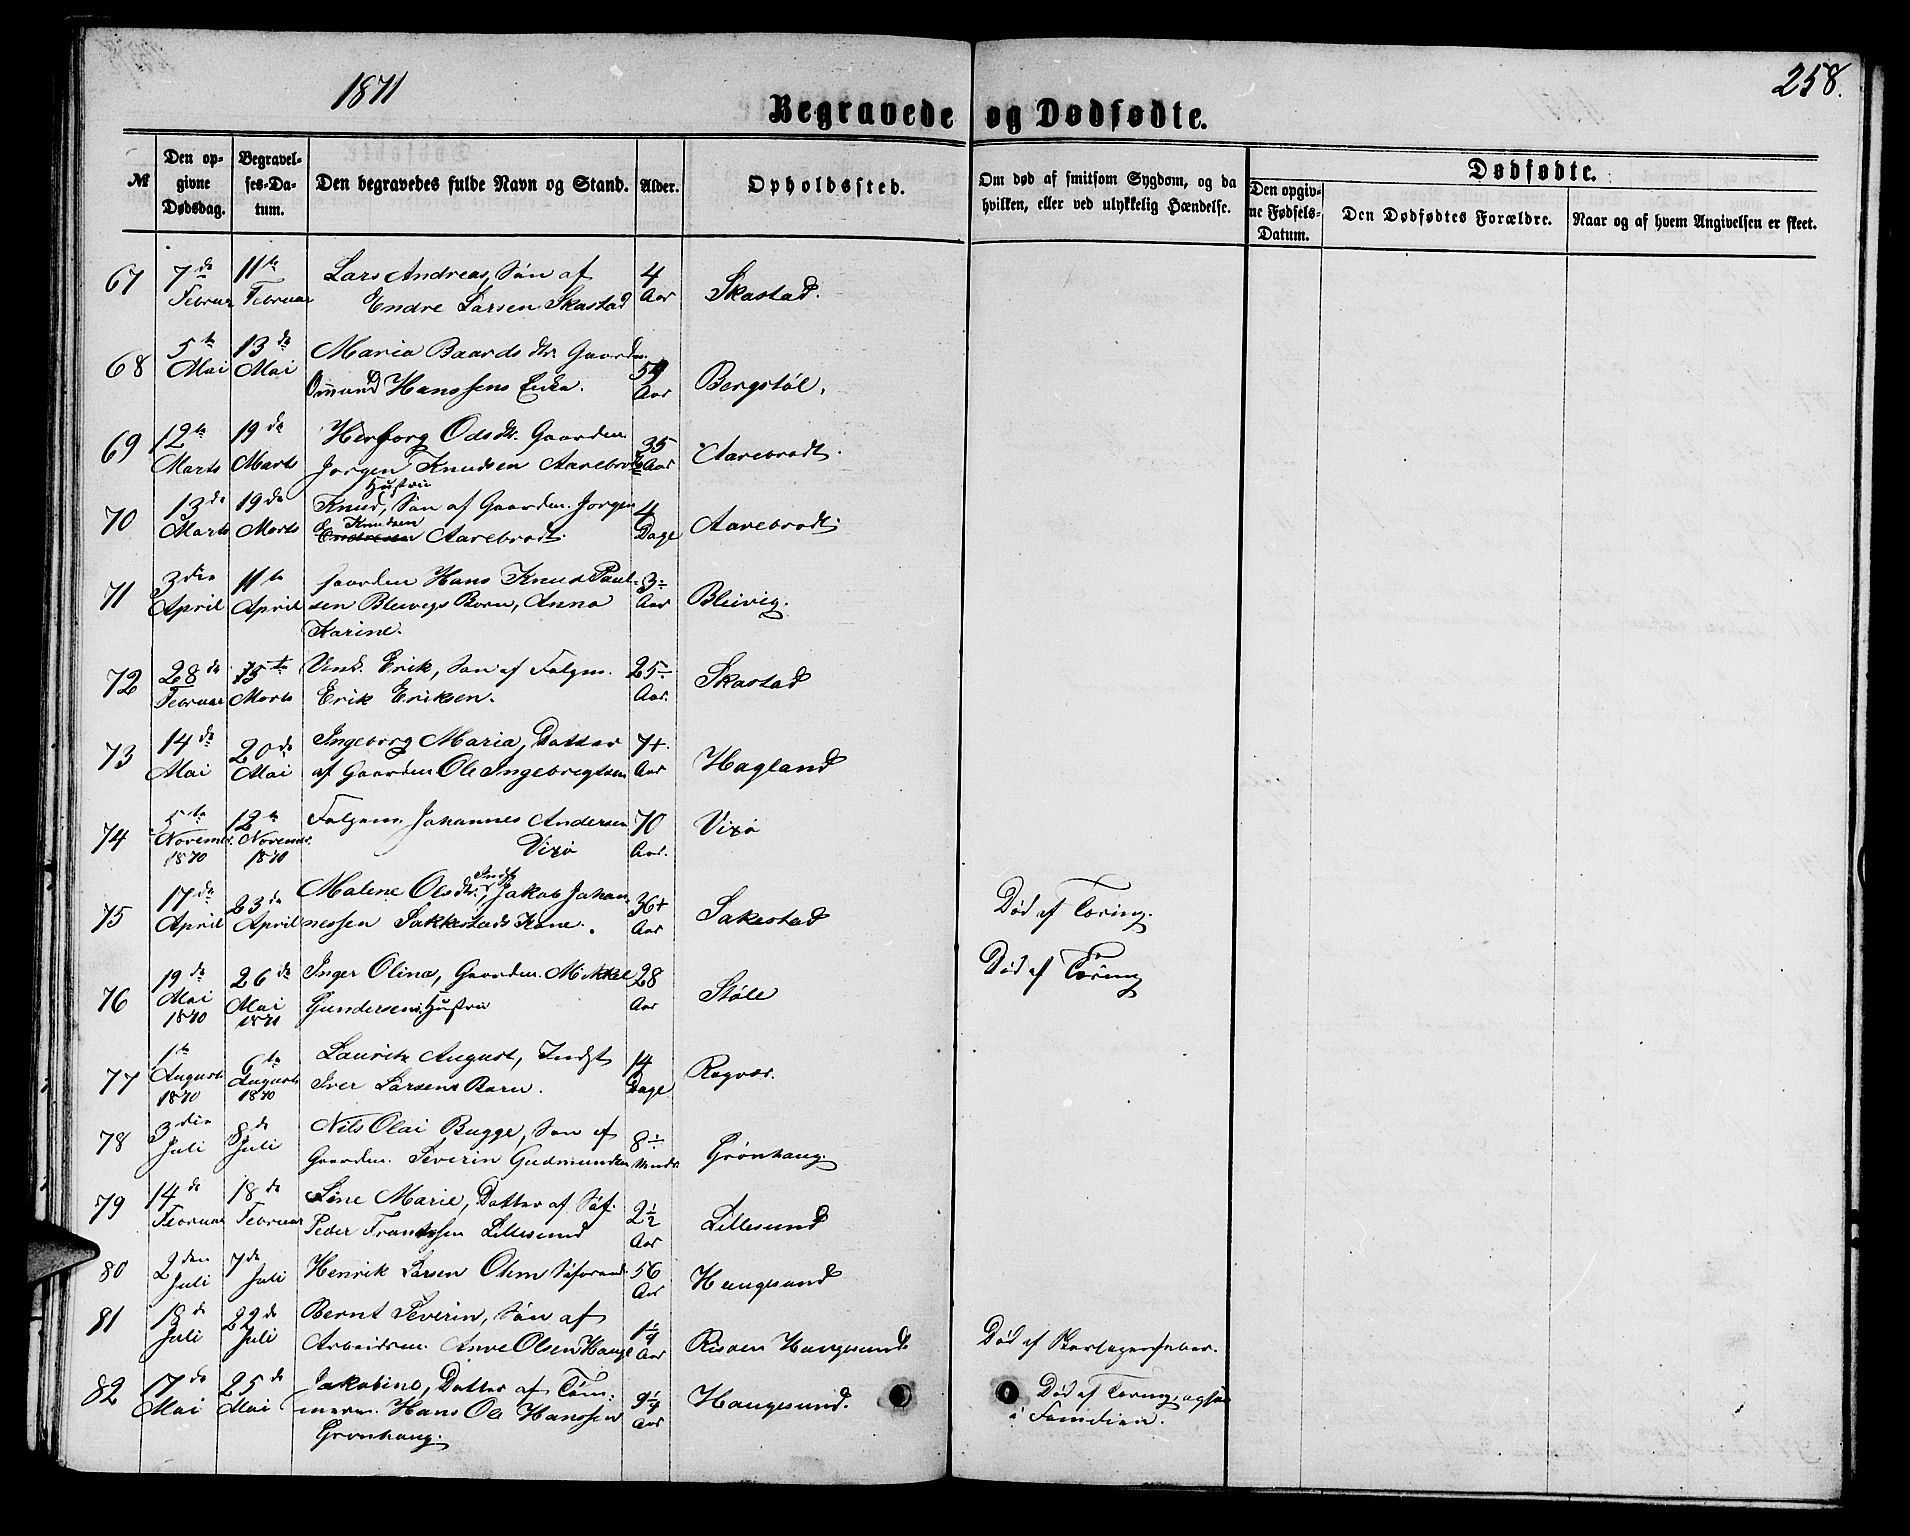 1871
258.
Begravede og Dødfødte.
№
Den op-
givne
Dødsdag.
Begravel-
ses-Da-
tum.
Den begravedes fulde Navn og Stand.
Alder.
Opholdssted.
Om død af smitsom Sygdom, og da
hvilken, eller ved ulykkelig Hændelse.
Dødfødte.
Den opgiv-
ne Fødsels-
Datum.
Den Dødfødtes Forældre.
Naar og af hvem Angivelsen er skeet.
67 7de 11te Lars Andreas, Søn af 4
Februar Februar Endre Larsen Skastad Aar Skastad.
68 5te 13de Maria Baardsdtr. Gaardm.
Mai Mai Omund Hanssens Enke. 59 Aar Bergstøl.
69 12te 19de Herborg Odsdtr. Gaardm. 35
Marts Marts Jørgen Knudsen Aarebrodt Aar Aarebrodt.
Hustru
70 13de 19de Knud, Søn af Gaardm. Jørgen 4
Marts Marts Knudsen Aarebrodt. Dage Aarebrodt.
71 3die 11te Gaardm Hans Knud Paul- 3
April April sen Bleivigs Barn, Anna Aar Bleivig.
Karine.
72 28de 15te Unk. Erik, Søn af Folgm. 25
Februar Marts Erik Eriksen. Aar. Skastad
73 14de 20de Ingeborg Maria, Datter 7+
Mai Mai af Gaardm. Ole Ingebregtsen Aar Hagland
74 5te 12te Folgem. Johannes Andersen 70 Vixø
Novembr. Novembr. Vixø Aar.
1870 1870
75 17de 23de Malene Olsdtr., Indst. Jakob Johan- 36+ Død af Tæring.
April April nessen Sakkestads Kone. Aar Sakestad
76 19de 26de Inger Olina, Gaardm. Mikkel 28 Død af Tæring
Mai Mai Gundersens Hustru Aar Støle
1870 1871
77 1te 6te Lauritz August, Indst 14
August August Iver Larsens Barn. Dage Røgvær.
1870 1870
78 3die 8de Nils Olai Bugge, Søn af 8
Juli Juli Gaardm. Severin Gudmundsen Mndr. Grønhaug.
79 14de 18de Line Marie, Datter af Søf. 2½
Februar Februar Peder Frantssen Lillesund Aar Lillesund
80 2den 7de Henrik Larsen Ohm Søfarend. 56
Juli Juli Aar Haugesund
81 18de 22de Bernt Severin, Søn af 1¼
Juli Juli Arbeidsm. Anve Olsen Hauge Aar Risøen Haugesund. Død af
82 17de 25de Jakobine, Datter af Tøm- 9¼ Død af Tæring, ogsaa
Mai Mai merm. Hans Ole Hanssen Aar Haugesund. i Familien.
Grønhaug.